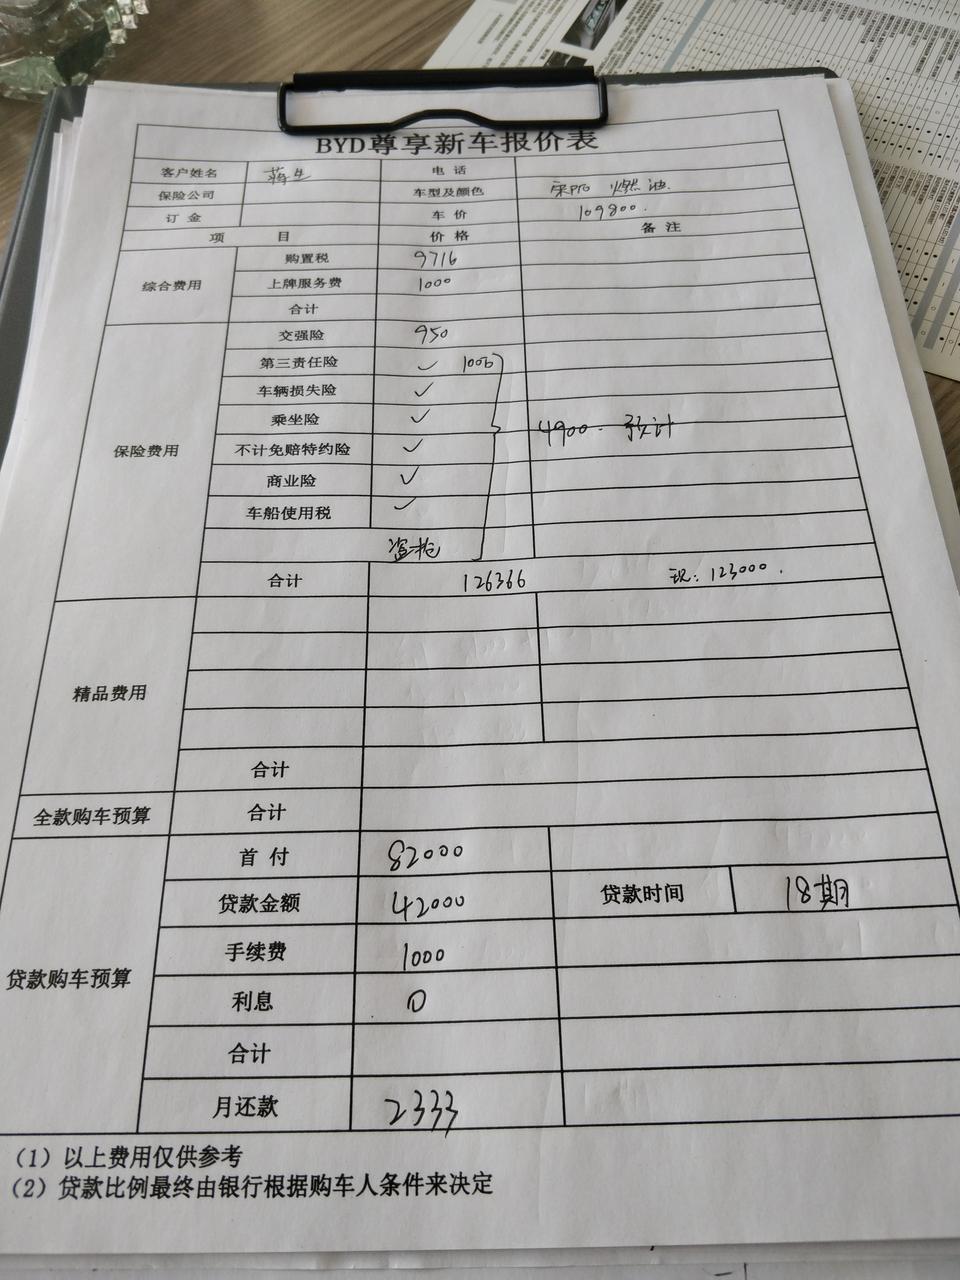 BYD尊享新车报价表
客户姓名 蒋生 电 话
保险公司 车型及颜色 宋pro 燃油.
订 金 车 价 109800.
项 目 价 格 备 注
综合费用 购置税 9716
上牌服务费 1000
合计
保险费用 交强险 950
第三责任险 ✓ 100万
车辆损失险 ✓
乘坐险 ✓ 4900. 预计
不计免赔特约险 ✓
商业险 ✓
车船使用税 ✓
盗抢
合计 126366 现: 123000.
精品费用
合计
全款购车预算 合计
贷款购车预算 首 付 82000
贷款金额 42000 贷款时间 18期
手续费 1000
利息 0
合计
月还款 2333
(1) 以上费用仅供参考
(2) 贷款比例最终由银行根据购车人条件来决定